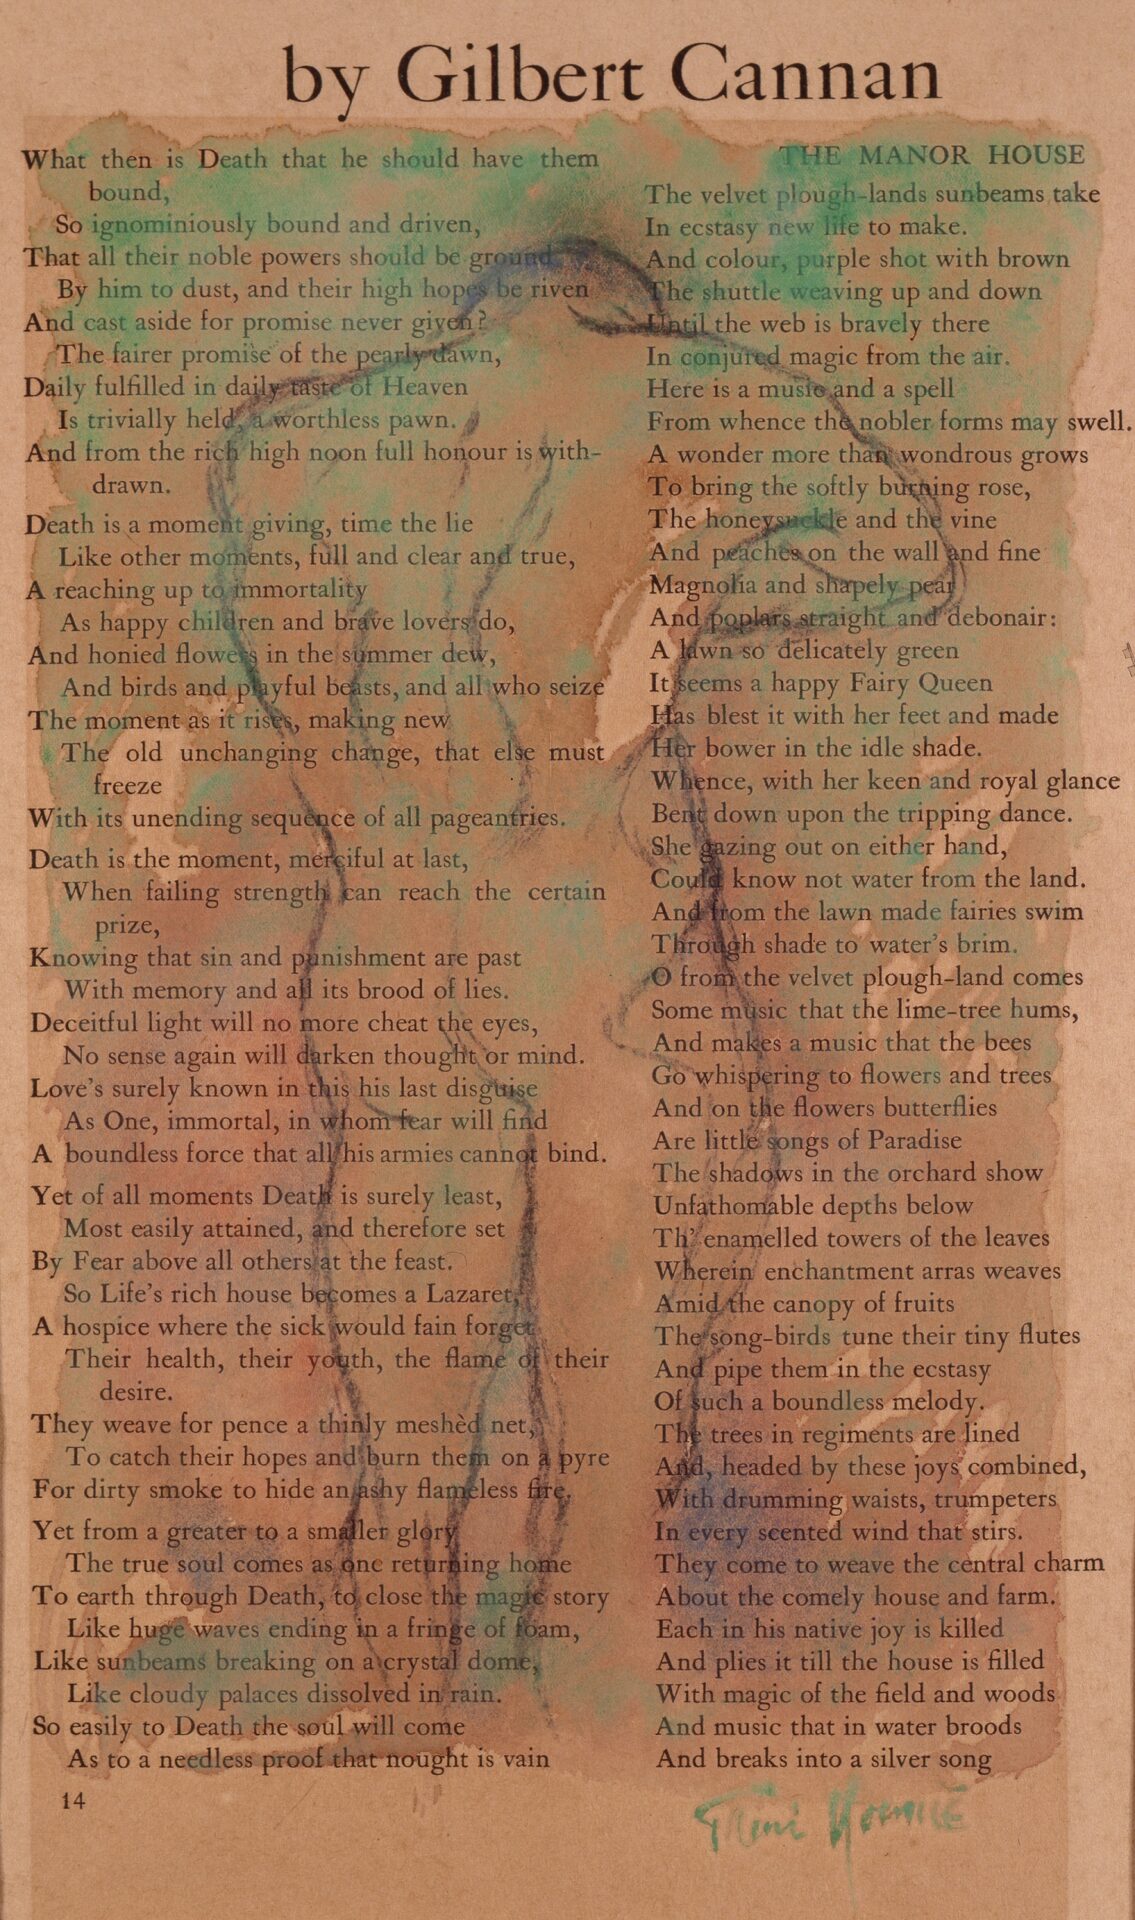 by Gilbert Cannan
What then is Death that he should have them
bound,
So ignominiously bound and driven,
That all their noble powers should be ground
By him to dust, and their high hopes be riven
And cast aside for promise never given?
The fairer promise of the pearly dawn,
Daily fulfilled in daily taste of Heaven
Is trivially held, a worthless pawn.
And from the rich high noon full honour is with-
drawn.
Death is a moment giving, time the lie
Like other moments, full and clear and true,
A reaching up to immortality
As happy children and brave lovers do,
And honied flowers in the summer dew,
And birds and playful beasts, and all who seize
The moment as it rises, making new
The old unchanging change, that else must
freeze
With its unending sequence of all pageantries.
Death is the moment, merciful at last,
When failing strength can reach the certain
prize,
Knowing that sin and punishment are past
With memory and all its brood of lies.
Deceitful light will no more cheat the eyes,
No sense again will darken thought or mind.
Love's surely known in this his last disguise
As One, immortal, in whom fear will find
A boundless force that all his armies cannot bind.
Yet of all moments Death is surely least,
Most easily attained, and therefore set
By Fear above all others at the feast.
So Life's rich house becomes a Lazaret,
A hospice where the sick would fain forget
Their health, their youth, the flame of their
desire.
They weave for pence a thinly meshèd net,
To catch their hopes and burn them on a pyre
For dirty smoke to hide an ashy flameless fire.
Yet from a greater to a smaller glory
The true soul comes as one returning home
To earth through Death, to close the magic story
Like huge waves ending in a fringe of foam,
Like sunbeams breaking on a crystal dome,
Like cloudy palaces dissolved in rain.
So easily to Death the soul will come
As to a needless proof that nought is vain
14
THE MANOR HOUSE
The velvet plough-lands sunbeams take
In ecstasy new life to make.
And colour, purple shot with brown
The shuttle weaving up and down
Until the web is bravely there
In conjured magic from the air.
Here is a music and a spell
From whence the nobler forms may swell.
A wonder more than wondrous grows
To bring the softly burning rose,
The honeysuckle and the vine
And peaches on the wall and fine
Magnolia and shapely pear
And poplars straight and debonair:
A lawn so delicately green
It seems a happy Fairy Queen
Has blest it with her feet and made
Her bower in the idle shade.
Whence, with her keen and royal glance
Bent down upon the tripping dance.
She gazing out on either hand,
Could know not water from the land.
And from the lawn made fairies swim
Through shade to water's brim.
O from the velvet plough-land comes
Some music that the lime-tree hums,
And makes a music that the bees
Go whispering to flowers and trees
And on the flowers butterflies
Are little songs of Paradise
The shadows in the orchard show
Unfathomable depths below
Th' enamelled towers of the leaves
Wherein enchantment arras weaves
Amid the canopy of fruits
The song-birds tune their tiny flutes
And pipe them in the ecstasy
Of such a boundless melody.
The trees in regiments are lined
And, headed by these joys combined,
With drumming waists, trumpeters
In every scented wind that stirs.
They come to weave the central charm
About the comely house and farm.
Each in his native joy is killed
And plies it till the house is filled
With magic of the field and woods
And music that in water broods
And breaks into a silver song